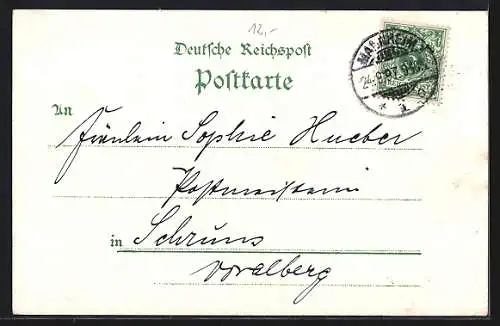 12,-
Deutsche Reichspost
Postkarte
MANNHEIM
24.6.97
An
Fräulein Sophie Hueber
Postmeisterin
in Schruns
Voralberg